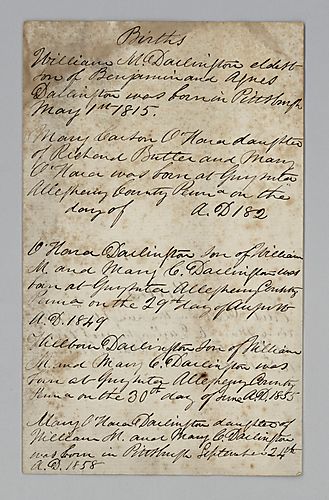 Births
William M. Darlington eldest
son of Benjamin and Agnes
Darlington was born in Pittsburgh
May 1st 1815.
Mary Carson O'Hara daughter
of Richard Butler and Mary
O'Hara was born at Guyasuta
Allegheny County Penna on the
day of A.D 182
O'Hara Darlington son of William
M. and Mary C. Darlington was
born at Guyasuta Allegheny County
Penna on the 29th day of August
A.D. 1849
Darlington Son of William
M. and Mary C. Darlington was
born at Guyasuta Allegheny County
Penna on the 30th day of June A.D. 1855
Mary O'Hara Darlington daughter of
William M. and Mary C. Darlington
was born in Pittsburgh September 24th
A.D. 1858